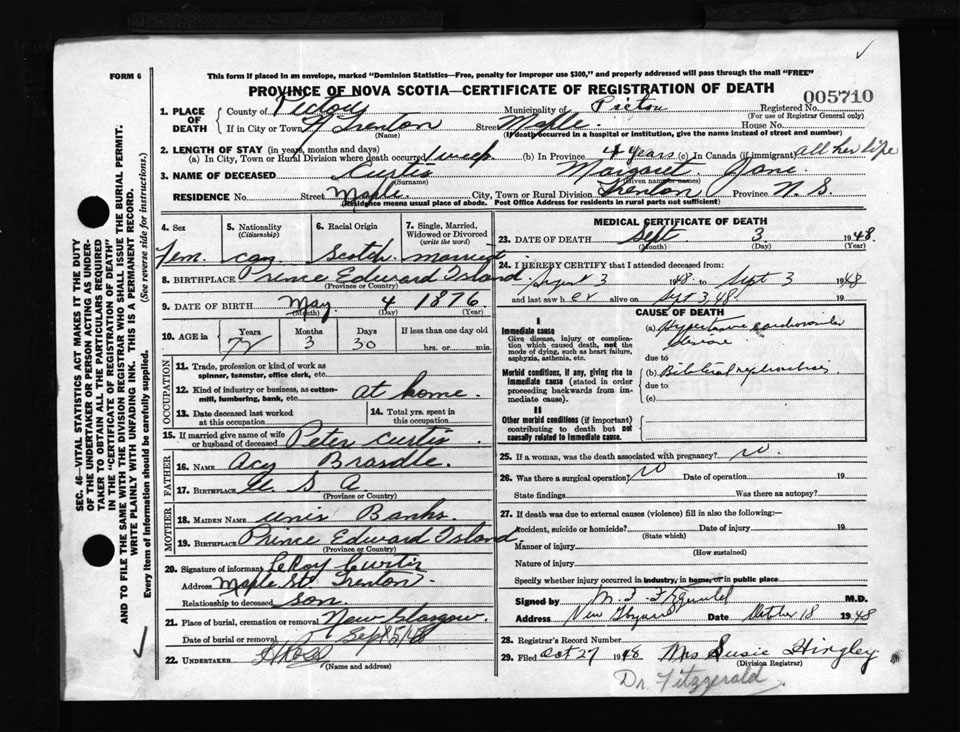 FORM 6
This form if placed in an envelope, marked "Dominion Statistics—Free, penalty for improper use $300," and properly addressed will pass through the mail "FREE"
PROVINCE OF NOVA SCOTIA—CERTIFICATE OF REGISTRATION OF DEATH
1. PLACE OF DEATH County of Pictou Municipality of Pictou Registered No. 005710
(For use of Registrar General only)
If in City or Town Trenton Street Maple House No.
(Name) (If death occurred in a hospital or institution, give the name instead of street and number)
2. LENGTH OF STAY (in years, months and days)
(a) In City, Town or Rural Division where death occurred 1 week (b) In Province 4 years (c) In Canada (if immigrant) all her life
3. NAME OF DECEASED Curtis Margaret Jane
(Surname) (Given name or names)
RESIDENCE No. Street Maple City, Town or Rural Division Trenton Province N.S.
(Residence means usual place of abode. Post Office Address for residents in rural parts not sufficient)
4. Sex 5. Nationality (Citizenship) 6. Racial Origin 7. Single, Married, Widowed or Divorced (write the word)
Fem can Scotch married
8. BIRTHPLACE Prince Edward Island
(Province or Country)
9. DATE OF BIRTH May 4 1876
(Month) (Day) (Year)
10. AGE in Years Months Days If less than one day old
72 3 30 hrs. or min.
OCCUPATION
11. Trade, profession or kind of work as spinner, teamster, office clerk, etc.
12. Kind of industry or business, as cotton-mill, lumbering, bank, etc. at home.
13. Date deceased last worked at this occupation
14. Total yrs. spent in this occupation
15. If married give name of wife or husband of deceased Peter Curtis
FATHER
16. NAME Acy
17. BIRTHPLACE U.S.A
(Province or Country)
MOTHER
18. MAIDEN NAME Unis Banks
19. BIRTHPLACE Prince Edward Island.
(Province or Country)
20. Signature of informant LeRoy Curtis
Address Maple St. Trenton
Relationship to deceased son.
21. Place of burial, cremation or removal New Glasgow.
Date of burial or removal Sept 5/48
22. UNDERTAKER
(Name and address)
MEDICAL CERTIFICATE OF DEATH
23. DATE OF DEATH Sept. 3 1948
(Month) (Day) (Year)
24. I HEREBY CERTIFY that I attended deceased from:
August 3 1948 to Sept 3 1948
and last saw her alive on Sept 3, 48 19
CAUSE OF DEATH
I
Immediate cause
Give disease, injury or complication which caused death, not the mode of dying, such as heart failure, asphyxia, asthenia, etc.
(a) Hypertensive cardiovascular disease
due to
Morbid conditions, if any, giving rise to immediate cause (stated in order proceeding backwards from immediate cause).
(b)
due to
(c)
II
Other morbid conditions (if important) contributing to death but not causally related to immediate cause.
25. If a woman, was the death associated with pregnancy? no.
26. Was there a surgical operation? no Date of operation 19
State findings Was there an autopsy?
27. If death was due to external causes (violence) fill in also the following:—
Accident, suicide or homicide? Date of injury 19
(State which)
Manner of injury
(How sustained)
Nature of injury
Specify whether injury occurred in industry, in home, or in public place
Signed by M.D.
Address New Glasgow Date October 18 1948
28. Registrar's Record Number
29. Filed Oct 27 1948 Mrs Susie Hingley
(Division Registrar)
Dr. Fitzgerald
SEC. 46—VITAL STATISTICS ACT MAKES IT THE DUTY
OF THE UNDERTAKER OR PERSON ACTING AS UNDER-
TAKER TO OBTAIN ALL THE PARTICULARS REQUIRED
IN THE "CERTIFICATE OF REGISTRATION OF DEATH"
AND TO FILE THE SAME WITH THE DIVISION REGISTRAR WHO SHALL ISSUE THE BURIAL PERMIT.
WRITE PLAINLY WITH UNFADING INK. THIS IS A PERMANENT RECORD.
Every item of Information should be carefully supplied. (See reverse side for instructions.)